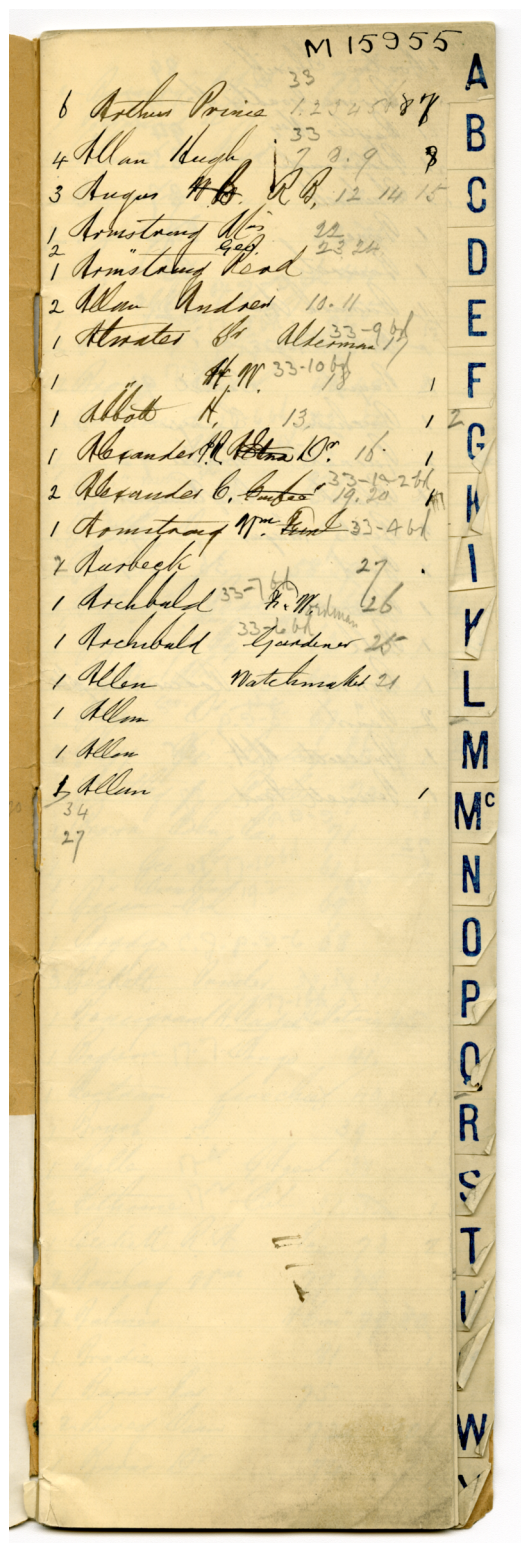 M 15955
33
6 Arthur Prince 1.2.3 4 5 6 8 7
33
4 Allan Hugh 7 8. 9 8
3 Angus R B. 12 14 15
1 Armstrong Mrs 22
2 " Geo. 23 24
1 Armstrong Road
2 Allan Andrew 10. 11
1 Atwater Sr Alderman 33-9 bd 17
1 " H. W. 33-10 bd 18 1
1 Abbott H. 13. 1 2
1 Alexander Dr. 16. 1
2 Alexander C. 33-1a-2 bd 19. 20
1 Armstrong Wm. 33-4 bd
2 Aurbach 27
1 Archbald 33-7 bd F. W. 26
1 Archbald 33-6 bd Gardiner 25
1 Allen Watchmaker 21
1 Allan
1 Allan
1 Allan 1
34
27
A
B
C
D
E
F
G
H
I
K
L
M
Mc
N
O
P
Q
R
S
T
W